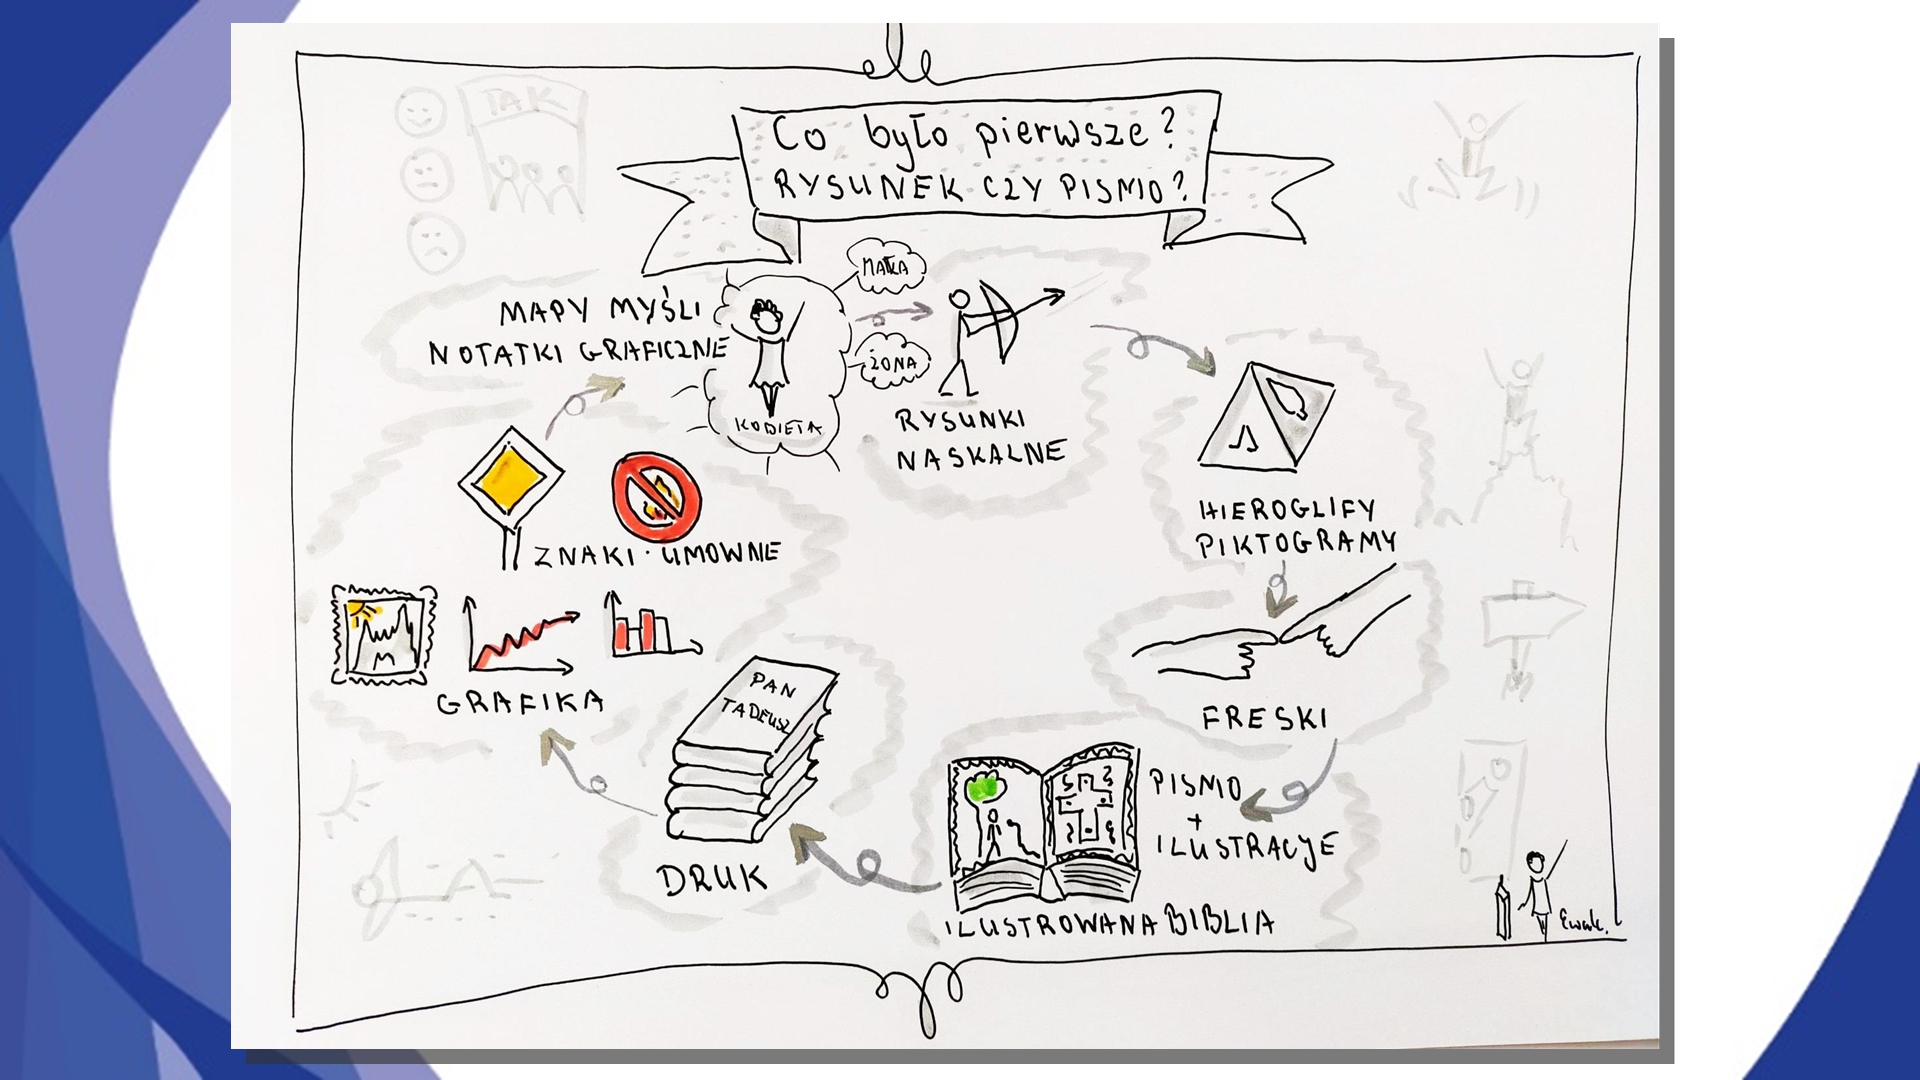 TAK
Co było pierwsze?
RYSUNEK CZY PISMO?
MATKA
ŻONA
KOBIETA
MAPY MYŚLI
NOTATKI GRAFICZNE
RYSUNKI
NASKALNE
HIEROGLIFY
PIKTOGRAMY
FRESKI
PISMO
+
ILUSTRACJE
ILUSTROWANA BIBLIA
PAN
TADEUSZ
DRUK
GRAFIKA
ZNAKI UMOWNE